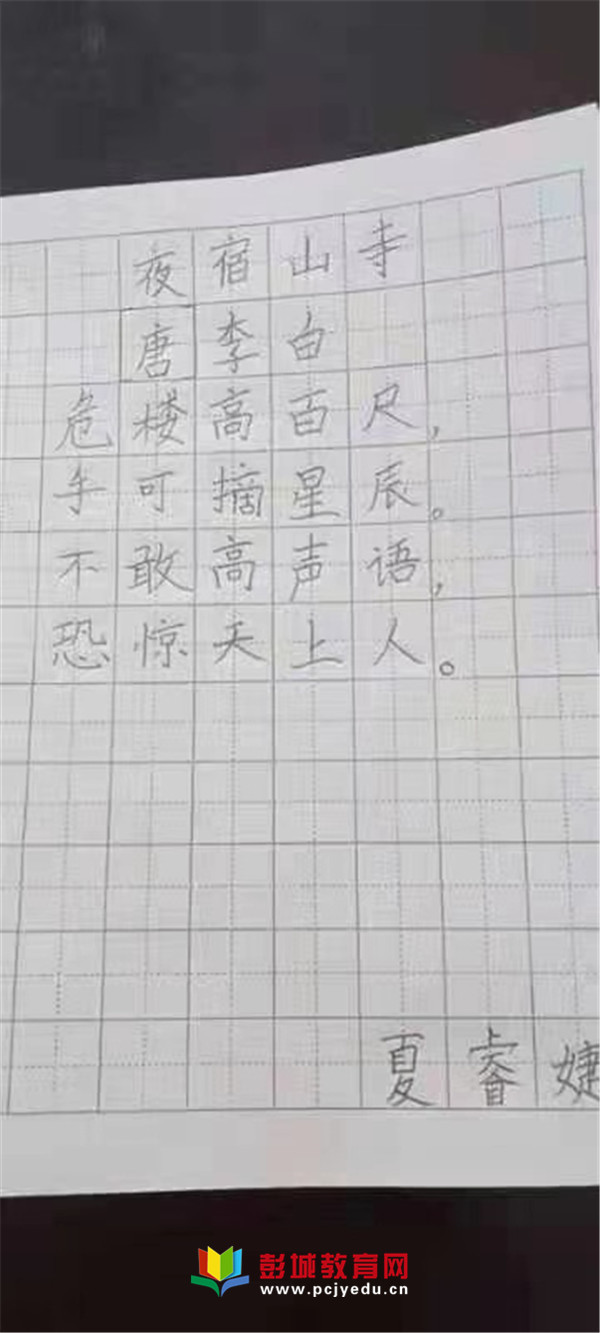 夜宿山寺
唐李白
危楼高百尺，
手可摘星辰。
不敢高声语，
恐惊天上人。
夏睿婕
彭城教育网
www.pcjyedu.cn